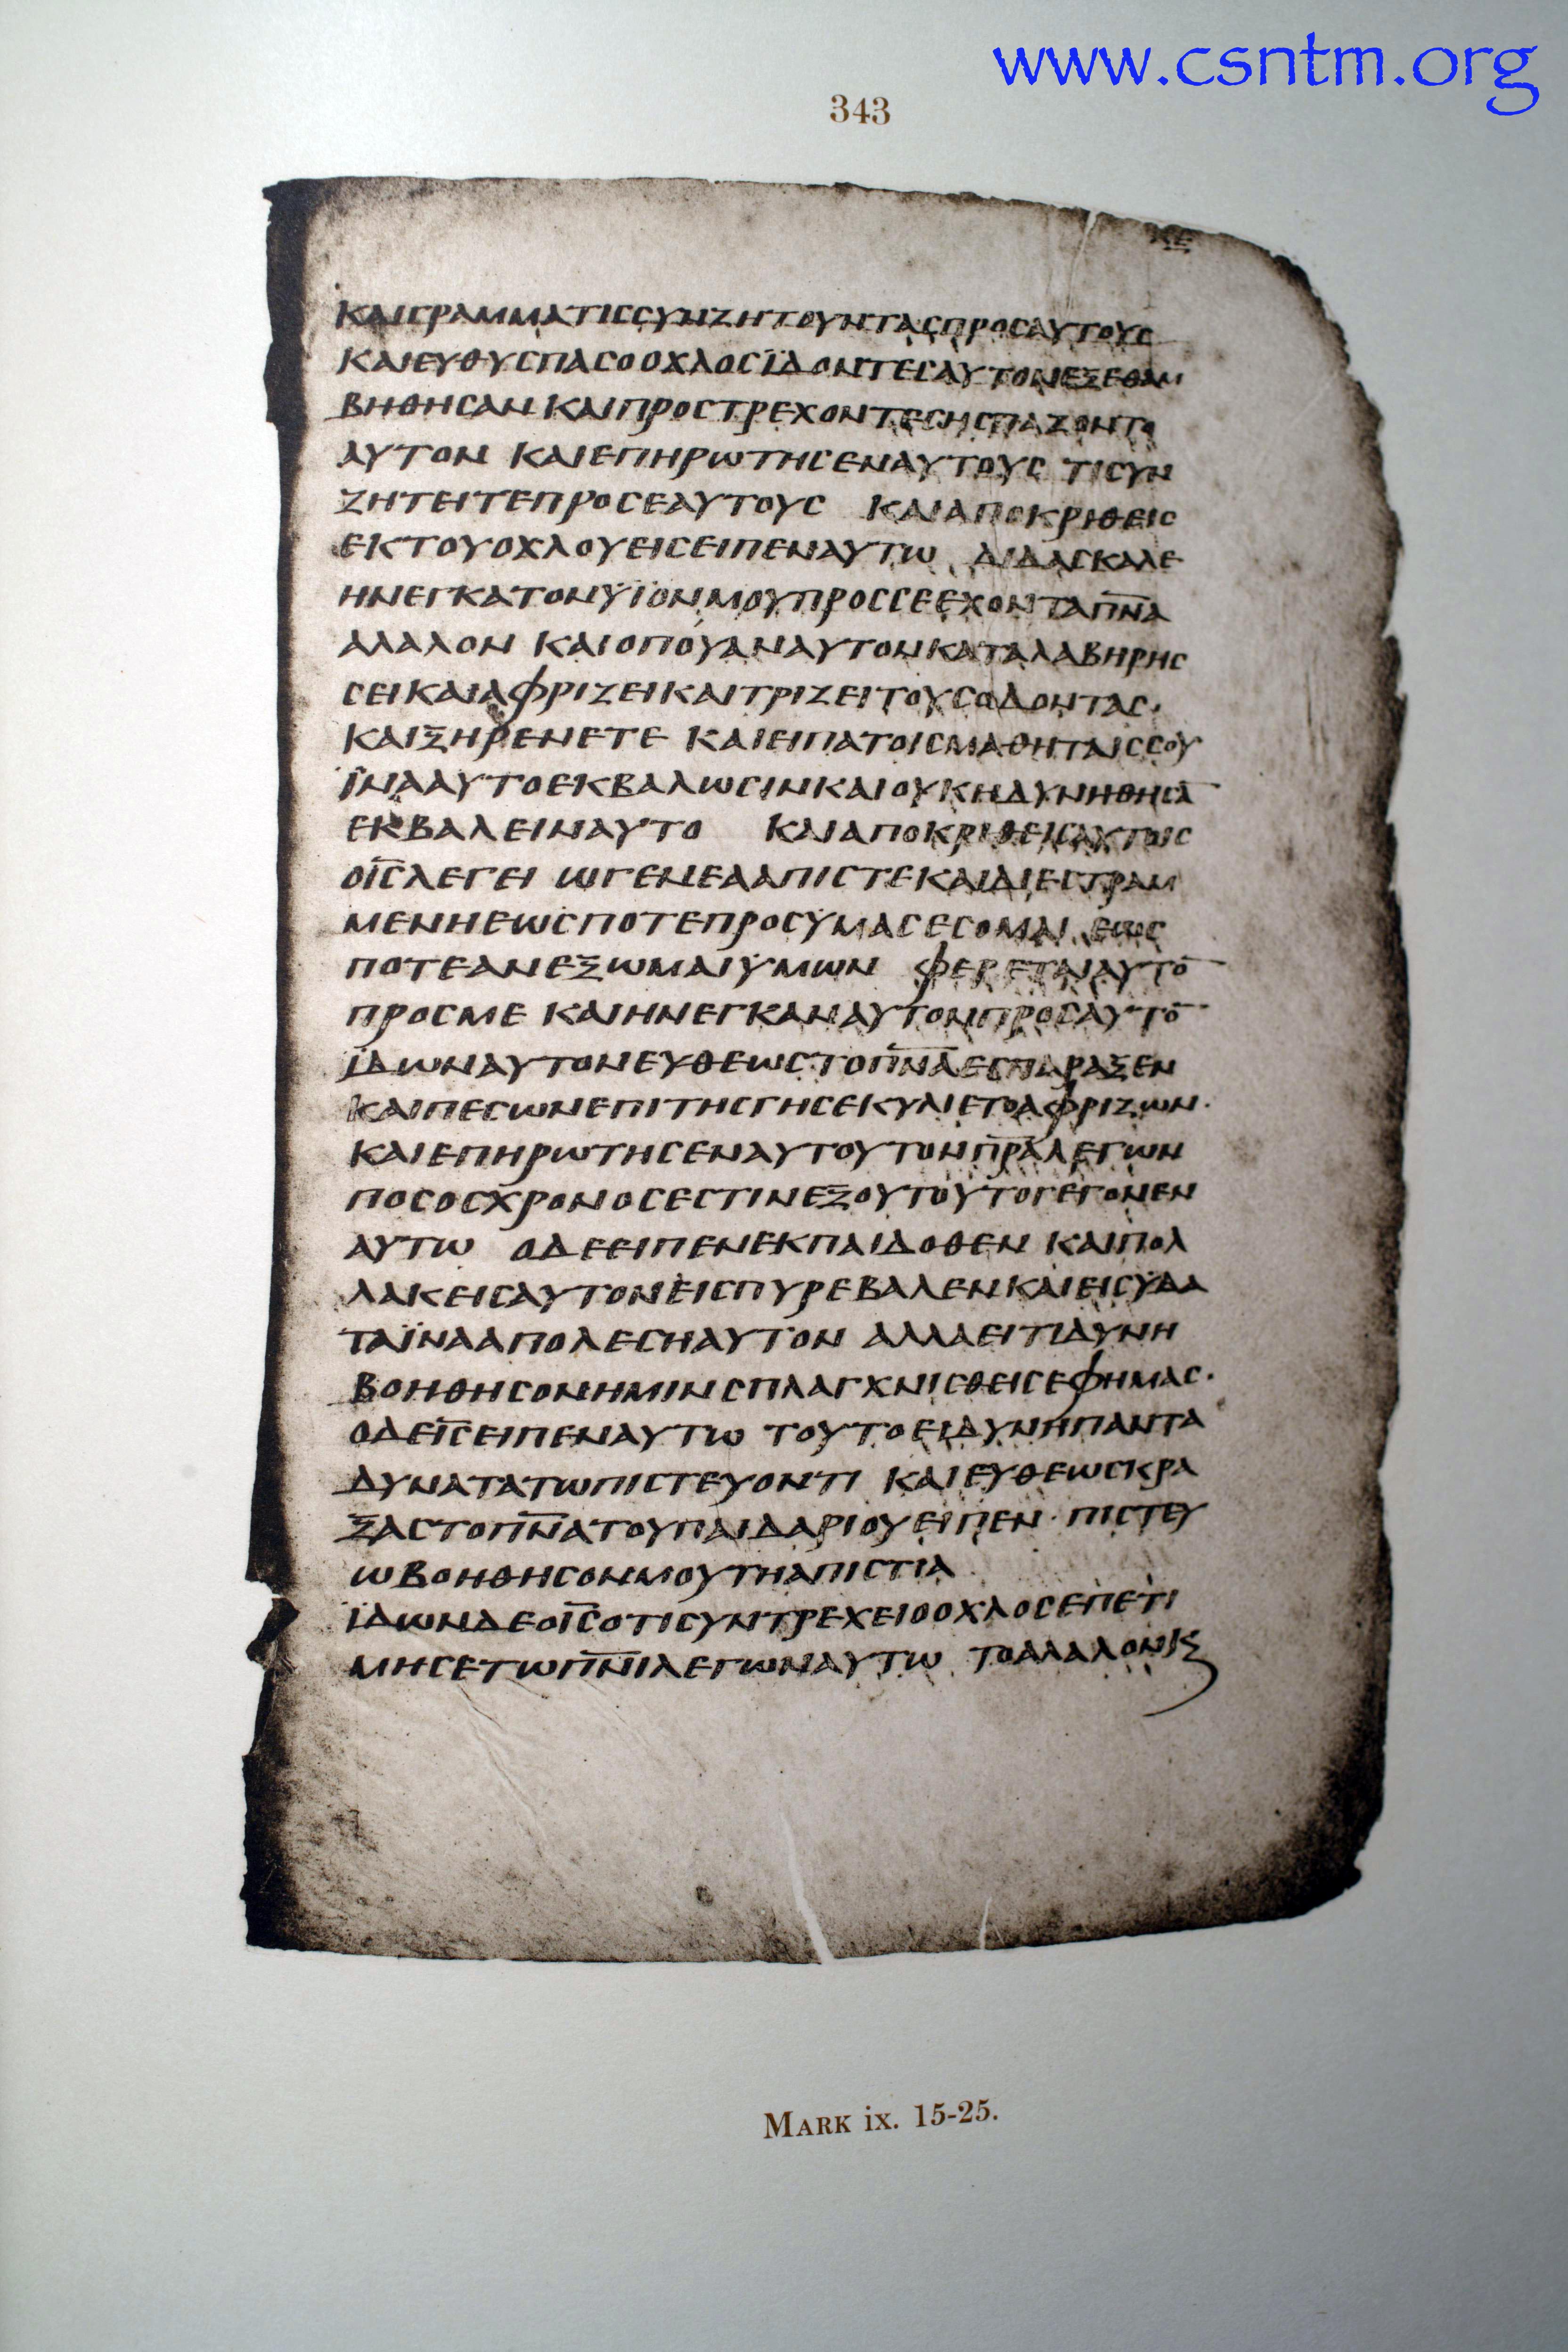 www.csntm.org
343
ΚΕ
ΚΑΙΓΡΑΜΜΑΤΙϹϹΥΝΖΗΤΟΥΝΤΑϹΠΡΟϹΑΥΤΟΥϹ
ΚΑΙΕΥΘΥϹΠΑϹΟΟΧΛΟϹΪΔΟΝΤΕϹΑΥΤΟΝΕΞΕΘΑΜ
ΒΗΘΗϹΑΝ ΚΑΙΠΡΟϹΤΡΕΧΟΝΤΕϹΗϹΠΑΖΟΝΤΟ
ΑΥΤΟΝ ΚΑΙΕΠΗΡΩΤΗϹΕΝΑΥΤΟΥϹ ΤΙϹΥΝ
ΖΗΤΕΙΤΕΠΡΟϹΕΑΥΤΟΥϹ ΚΑΙΑΠΟΚΡΙΘΕΙϹ
ΕΚΤΟΥΟΧΛΟΥΕΙϹΕΙΠΕΝΑΥΤΩ ΔΙΔΑϹΚΑΛΕ
ΗΝΕΓΚΑΤΟΝΫΪΟΝΜΟΥΠΡΟϹϹΕΕΧΟΝΤΑΠ̅Ν̅Α̅
ΑΛΑΛΟΝ ΚΑΙΟΠΟΥΑΝΑΥΤΟΝΚΑΤΑΛΑΒΗΡΗϹ
ϹΕΙΚΑΙΑΦΡΙΖΕΙΚΑΙΤΡΙΖΕΙΤΟΥϹΟΔΟΝΤΑϹ·
ΚΑΙΞΗΡΕΝΕΤΕ ΚΑΙΕΙΠΑΤΟΙϹΜΑΘΗΤΑΙϹϹΟΥ
ΪΝΑΑΥΤΟΕΚΒΑΛΩϹΙΝΚΑΙΟΥΚΗΔΥΝΗΘΗϹΑ̅
ΕΚΒΑΛΕΙΝΑΥΤΟ ΚΑΙΑΠΟΚΡΙΘΕΙϹΑΥΤΟΙϹ
ΟΙ̅Ϲ̅ΛΕΓΕΙ ΩΓΕΝΕΑΑΠΙϹΤΕΚΑΙΔΙΕϹΤΡΑΜ
ΜΕΝΗΕΩϹΠΟΤΕΠΡΟϹΫΜΑϹΕϹΟΜΑΙ ΕΩϹ
ΠΟΤΕΑΝΕΞΩΜΑΙΫΜΩΝ ΦΕΡΕΤΑΙΑΥΤΟ̅
ΠΡΟϹΜΕ ΚΑΙΗΝΕΓΚΑΝΑΥΤΟΝΠΡΟϹΑΥΤΟ̅
ΪΔΩΝΑΥΤΟΝΕΥΘΕΩϹΤΟΠ̅Ν̅Α̅ΕϹΠΑΡΑΞΕΝ
ΚΑΙΠΕϹΩΝΕΠΙΤΗϹΓΗϹΕΚΥΛΙΕΤΟΑΦΡΙΖΩΝ·
ΚΑΙΕΠΗΡΩΤΗϹΕΝΑΥΤΟΥΤΟΝΠ̅Ρ̅Α̅ΛΕΓΩΝ
ΠΟϹΟϹΧΡΟΝΟϹΕϹΤΙΝΕΞΟΥΤΟΥΤΟΓΕΓΟΝΕΝ
ΑΥΤΩ ΟΔΕΕΙΠΕΝΕΚΠΑΙΔΟΘΕΝ ΚΑΙΠΟΛ
ΛΑΚΕΙϹΑΥΤΟΝΕΙϹΠΥΡΕΒΑΛΕΝΚΑΙΕΙϹΫΔΑ
ΤΑΪΝΑΑΠΟΛΕϹΗΑΥΤΟΝ ΑΛΛΑΕΙΤΙΔΥΝΗ
ΒΟΗΘΗϹΟΝΗΜΙΝϹΠΛΑΓΧΝΙϹΘΕΙϹΕΦΗΜΑϹ·
ΟΔΕΙ̅Ϲ̅ΕΙΠΕΝΑΥΤΩ ΤΟΥΤΟΕΙΔΥΝΗΠΑΝΤΑ
ΔΥΝΑΤΑΤΩΠΙϹΤΕΥΟΝΤΙ ΚΑΙΕΥΘΕΩϹΚΡΑ
ΞΑϹΤΟΠ̅Ν̅Α̅ΤΟΥΠΑΙΔΑΡΙΟΥΕΙΠΕΝ· ΠΙϹΤΕΥ
ΩΒΟΗΘΗϹΟΝΜΟΥΤΗΑΠΙϹΤΙΑ
ΪΔΩΝΔΕΟΙ̅Ϲ̅ΟΤΙϹΥΝΤΡΕΧΕΙΟΟΧΛΟϹΕΠΕΤΙ
ΜΗϹΕΤΩΠ̅Ν̅Ι̅ΛΕΓΩΝΑΥΤΩ ΤΟΑΛΑΛΟΝΚϗ
MARK ix. 15-25.